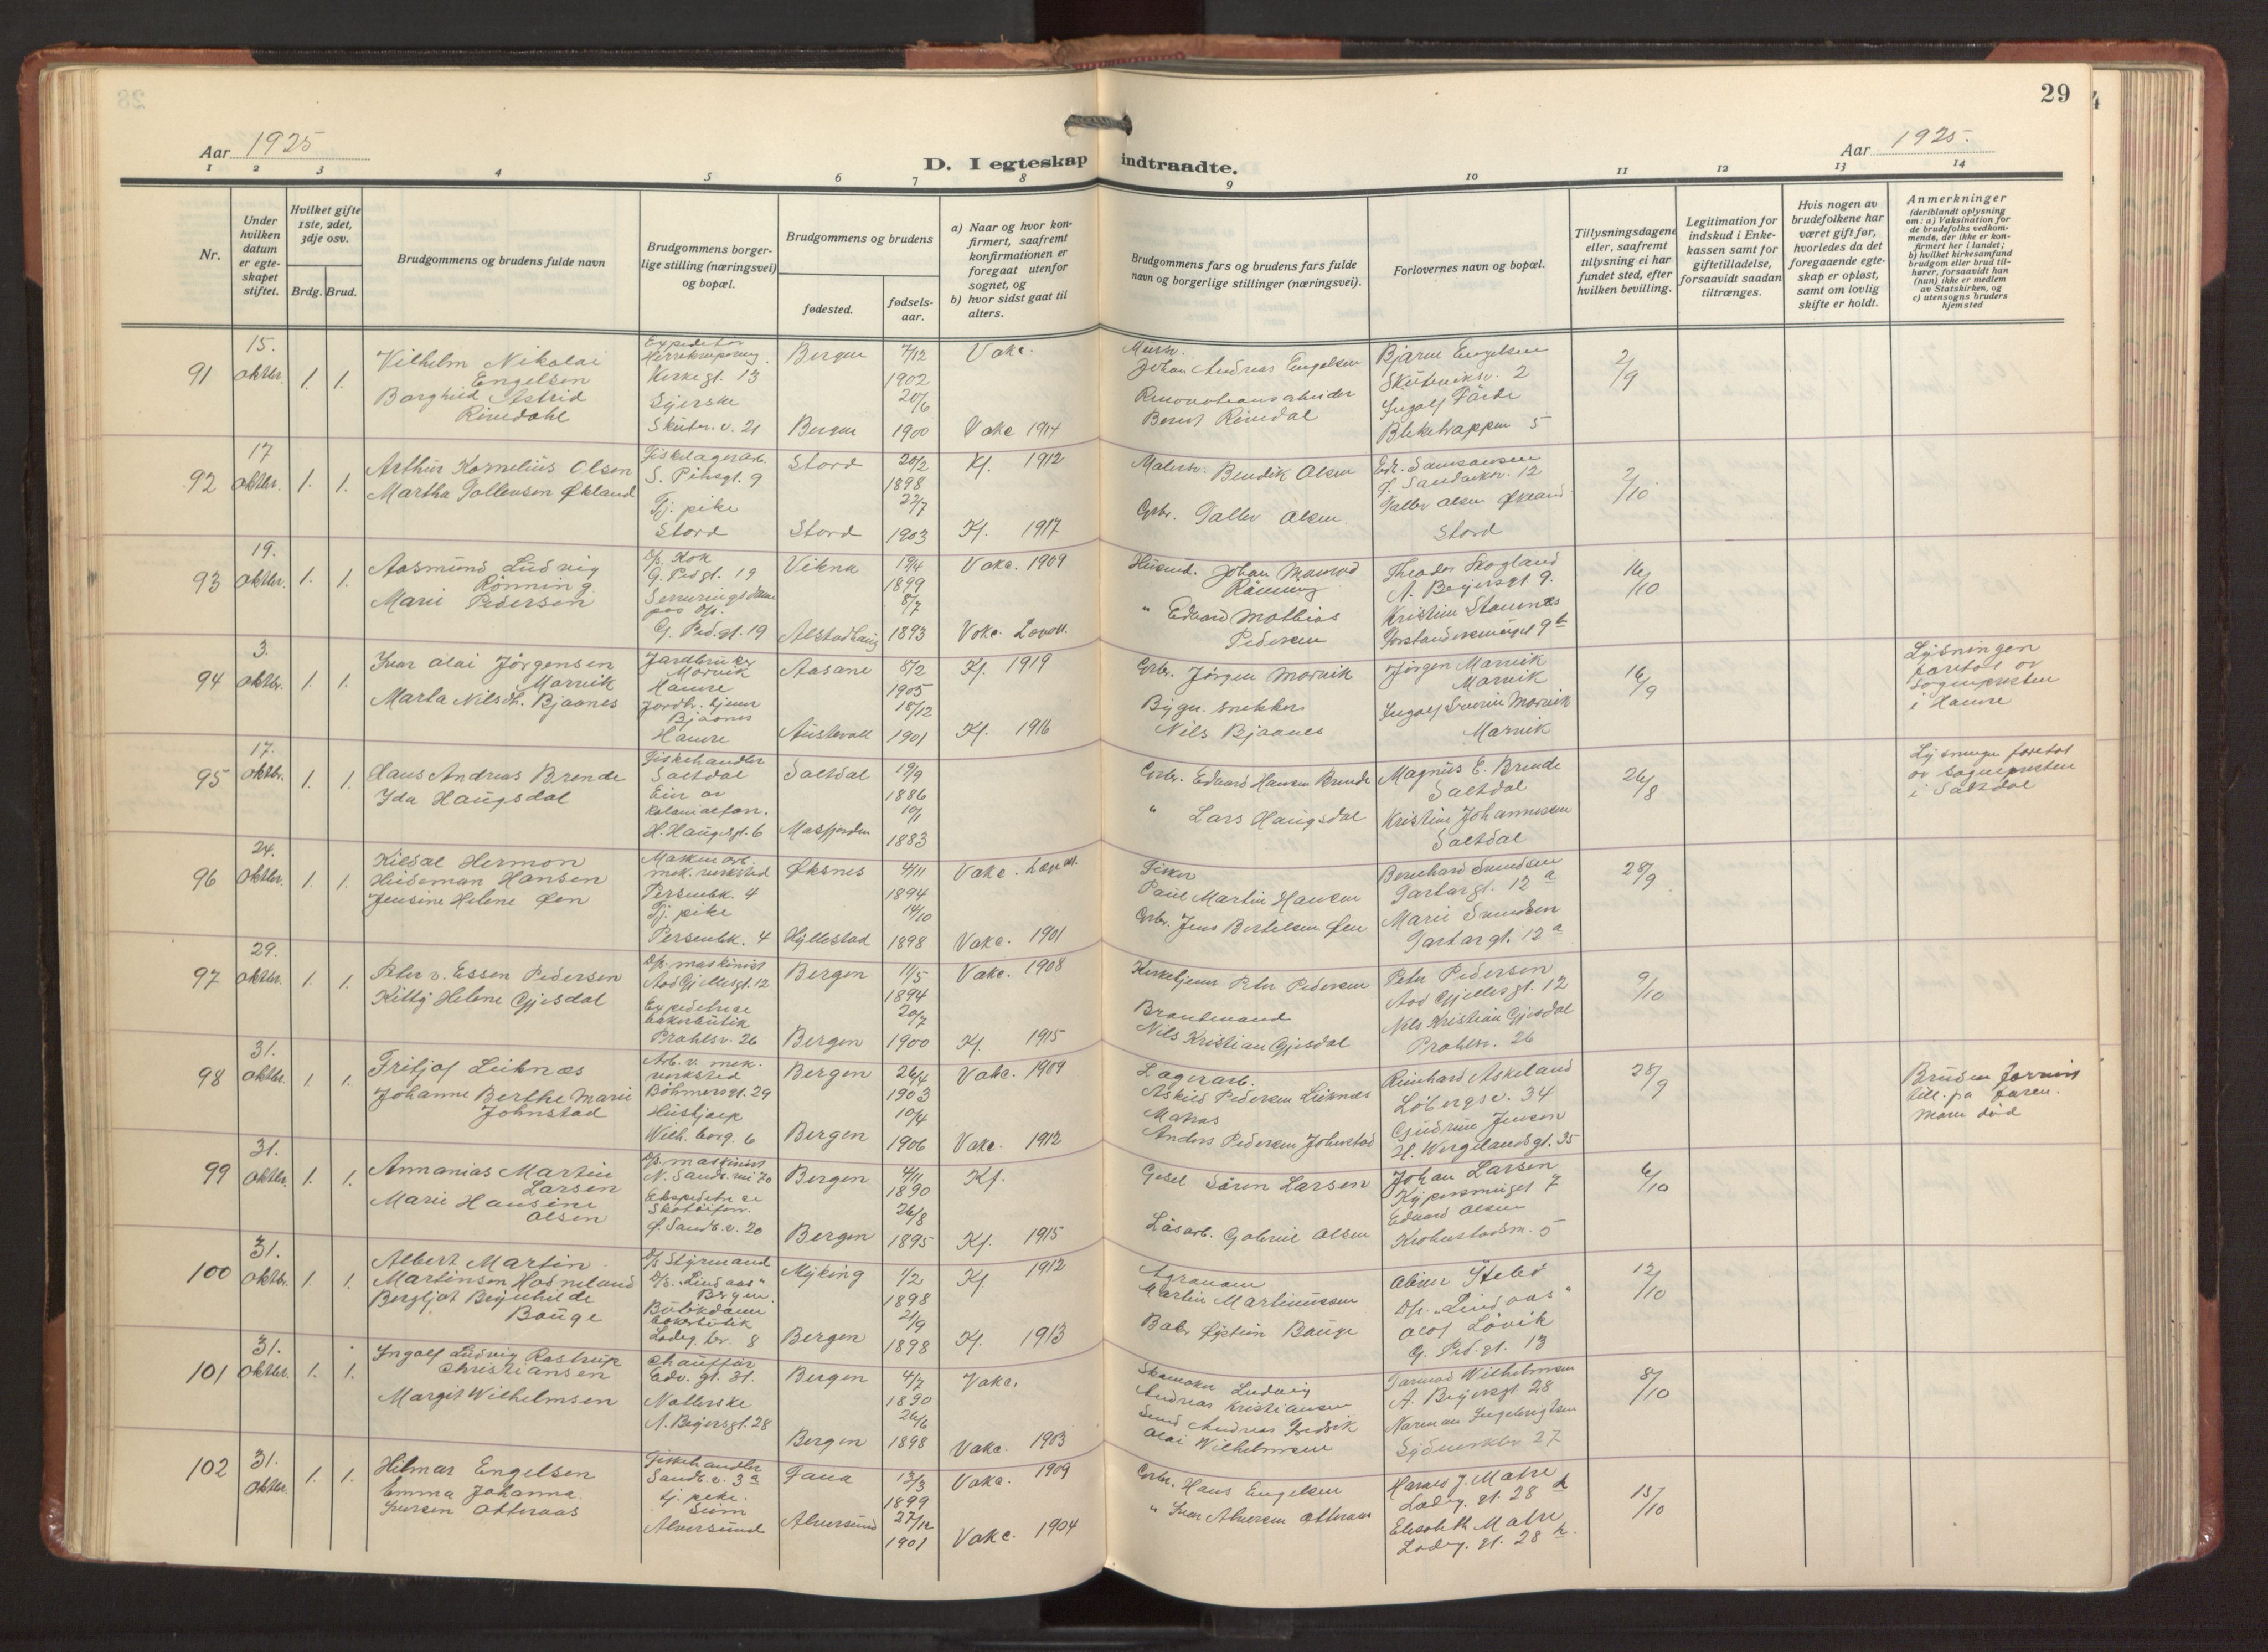 29
Aar 1925
Aar 1925.
D. I egteskap indtraadte.
1 2 3 4 5 6 7 8 9 10 11 12 13 14
Nr.
Under hvilken datum er egteskapet stiftet.
Hvilket gifte 1ste, 2det, 3dje osv.
Brdg. Brud.
Brudgommens og brudens fulde navn
Brudgommens borgerlige stilling (næringsvei) og bopæl.
Brudgommens og brudens
fødested.
fødselsaar.
a) Naar og hvor konfirmert, saafremt konfirmationen er foregaat utenfor sognet, og
b) hvor sidst gaat til alters.
Brudgommens fars og brudens fars fulde navn og borgerlige stillinger (næringsvei).
Forlovernes navn og bopæl.
Tillysningsdagene eller, saafremt tillysning ei har fundet sted, efter hvilken bevilling.
Legitimation for indskud i Enkekassen samt for giftetilladelse, forsaavidt saadan tiltrænges.
Hvis nogen av brudefolkene har været gift før, hvorledes da det foregaaende egteskap er opløst, samt om lovlig skifte er holdt.
Anmerkninger
(deriblandt oplysning om: a) Vaksination for de brudefolks vedkommende, der ikke er konfirmert her i landet; b) hvilket kirkesamfund brudgom eller brud tilhører, forsaavidt han (hun) ikke er medlem av Statskirken, og c) utensogns bruders hjemsted
91 15. oktbr. 1. 1.
Vilhelm Nikolai
Engelsen
Borghild Astrid
Rimdahl
Expeditør
Kirkegt. 13
Syerske
Skutev. v. 21
Bergen 7/12 1902 Vakc.
Bergen 20/6 1900 Vakc 1914
Murer.
Johan Andreas Engelsen
Renovationsarbeider
Bernt Rimdal
Bjarne Engelsen
Skuteviksv. 2
Ingolf Førde
Bleketrappen 5
2/9
92 17 oktbr. 1. 1.
Arthur Kornelius Olsen
Martha Tollevsen Økland
Fiskelagerarb.
S. Pihsgt. 9
Tj. pike
Stord
Stord 20/2 1898 Kf. 1912
Stord 22/7 1903 Kf. 1917
Malersv. Bendik Olsen
Grbr. Tallev Olsen.
Edv. Samsonsen
Ø. Sandviksv. 12
Tallev Olsen Økland
Stord
2/10
93 19. oktbr. 1. 1.
Aasmund Ludvig
Rønning
Marie Pedersen
D/s. Kok
G. Pedgt. 19
Serveringsdame
paa D/s.
G. Ped. gt. 19
Vikna 19/4 1899 Vakc. 1909
Alstadhaug 8/7 1893 Vakc.
Husmd. Johan
Rønning
" Edvard Mathias
Pedersen
Theodor Skogland
A. Beyersgt 9.
Kristine Stavnes
Forstandersmuget 9b
16/10
94 3. oktbr. 1. 1.
Ivar Olai Jørgensen
Morvik
Marta Nilsdt. Bjaanes
Jordbruker
Morvik
Hamre
Jordbr. hjem
Bjaanes
Hamre
Aasane 8/2 1905 Kf. 1919
Austevoll 18/12 1901 Kf. 1916
Grbr. Jørgen Morvik
Bygn. snekker
Nils Bjaanes
Jørgen Morvik
Morvik
Ingolf Severin Morvik
Morvik
16/9
Lysningen
foretat av
sognepresten
i Hamre
95 17. oktbr. 1. 1.
Hans Andreas Brende
Ida Haugsdal
Fiskehandler
Saltdal
Eier av
Kolonialforr.
H. Haugesgt. 6
Saltdal 19/9 1886
Masfjorden 10/1 1883
Grbr. Edvard Hansen Brende
" Lars Haugsdal
Magnus E. Brende
Saltdal
Kristine Johannessen
Saltdal
26/8
Lysningen foretat
av sognepresten
i Saltdal
96 24. oktbr. 1. 1.
Kildal Hermon
Heideman Hansen
Jensine Helene Øen
Maskinarb.
mek. verksted
Persenbk. 4
Tj. pike
Persenbk. 4
Øksnes 4/11 1894 Vakc.
Hyllestad 14/10 1898 Vakc. 1901
Fisker
Paul Martin Hansen
Grbr. Jens Bertelsen Øen
Bernhard Svendsen
Tartargt. 12a
Marie Svendsen
Tartargt. 12a
28/9
97 29. oktbr. 1. 1.
Peter v. Essen Pedersen
Kitty Helene Gjesdal
D/s. maskinist
Aad Gjellesgt. 12
Expeditrise
bakerbutik
Prahlsv. 26
Bergen 11/5 1894 Vakc. 1908
Bergen 20/7 1900 Kf. 1915
Kirketjener Peter Pedersen
Brandmand
Nils Kristian Gjesdal
Peter Pedersen
Aad Gjellesgt. 12
Nils Kristian Gjesdal
Prahlsv. 26
9/10
98 31. oktbr. 1 1.
Fritjof Leiknæs
Johanne Berthe Marie
Johnstad
Arb. v. mek.
verksted
Bøhmersgt. 29
Hushjelp
Wilh. borg. 6
Bergen 26/4 1903 Vakc. 1909
Bergen 10/4 1906 Vakc. 1912
Lagerarb.
Askild Pedersen Leiknæs
Matros
Anders Pedersen Johnstad
Reinhard Askeland
Løbergsv. 34
Gudrun Jensen
H. Wergelandsgt. 35
28/9
Bruden
till. fra faren.
Moren død
99 31. oktbr. 1. 1.
Annanias Martin
Larsen
Marie Hansine
Olsen
D/s. maskinist
N. Sandv. vei 70
Ekspeditrise
Skotøiforr.
Ø. Sandv. v. 20
Bergen 4/11 1890 Kf.
Bergen 26/8 1895 Kf. 1915
Gesel Søren Larsen
Løsarb. Gabriel Olsen
Johan Larsen
Kypersmuget 7
Edvard Olsen
Krohnstadsm. 5
6/10
100 31. oktbr. 1. 1.
Albert Martin
Martinsen Hodneland
Bergljot Brynhilde
Bauge
D/s Styrmand
D/s. "Lindaas"
Bergen.
Butikdame
bakerbutik
Ladeg. br. 8
Myking 1/2 1898 Kf 1912
Bergen 21/9 1898 Kf. 1913
Agronom
Martin Martinussen
Øistein Bauge
D/s. "Lindaas"
Olof Løvik
G. Ped. gt. 13
12/10
101 31. oktbr. 1. 1.
Ingolf Ludvig Rastrup
Christiansen
Margit Wilhelmsen
chauffør
Edv. gt. 31.
Natterske
A. Beyersgt. 28
Bergen 4/7 1890 Vakc.
Bergen 26/6 1898 Vakc. 1903
Skomaker Ludvig
Andreas Kristiansen
Smed Andreas Fredrik
Olai Wilhelmsen
Tarmod Wilhelmsen
A. Beyersgt 28
Norman Ingebrigtsen
27
8/10
102 31. oktbr. 1. 1.
Hilmar Engelsen
Emma Johanna
Iversen Otteraas
Fiskehandler
Sandv. v. 3a
tj. pike.
Seim
Alversund
Fana 13/3 1899 Vakc. 1909
Alversund 27/12 1901 Vakc. 1904
Grbr. Hans Engelsen
" Iver Alversen Otteraas
Harald J. Matre
Ladeg. gt. 28
Elisabeth Matre
Ladeg. gt. 28
15/10